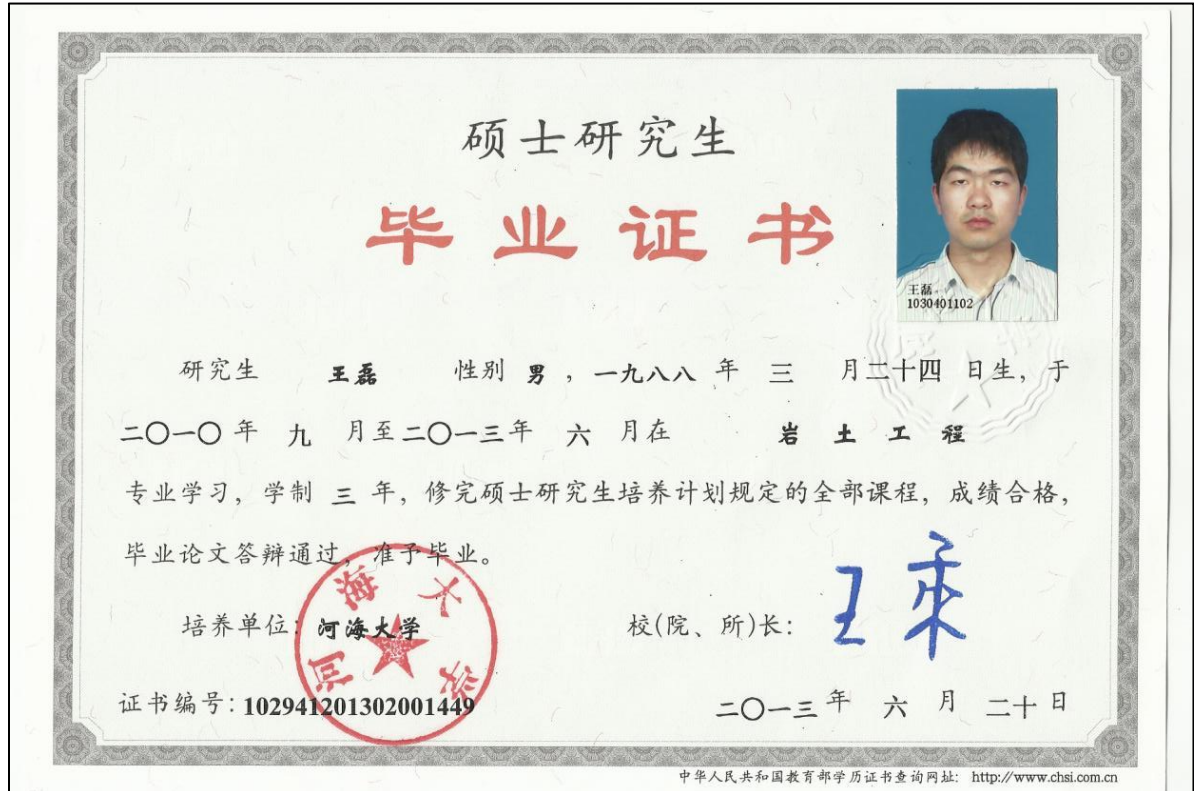 硕士研究生
毕业证书
王磊
1030401102
研究生 王磊 性别 男，一九八八 年 三 月二十四 日生，于
二〇一〇 年 九 月至二〇一三年 六 月在 岩土工程
专业学习，学制 三 年，修完硕士研究生培养计划规定的全部课程，成绩合格，
毕业论文答辩通过，准予毕业。
河海大学
培养单位：河海大学 校(院、所)长：
证书编号：102941201302001449 二〇一三 年 六 月 二十 日
中华人民共和国教育部学历证书查询网址： http://www.chsi.com.cn